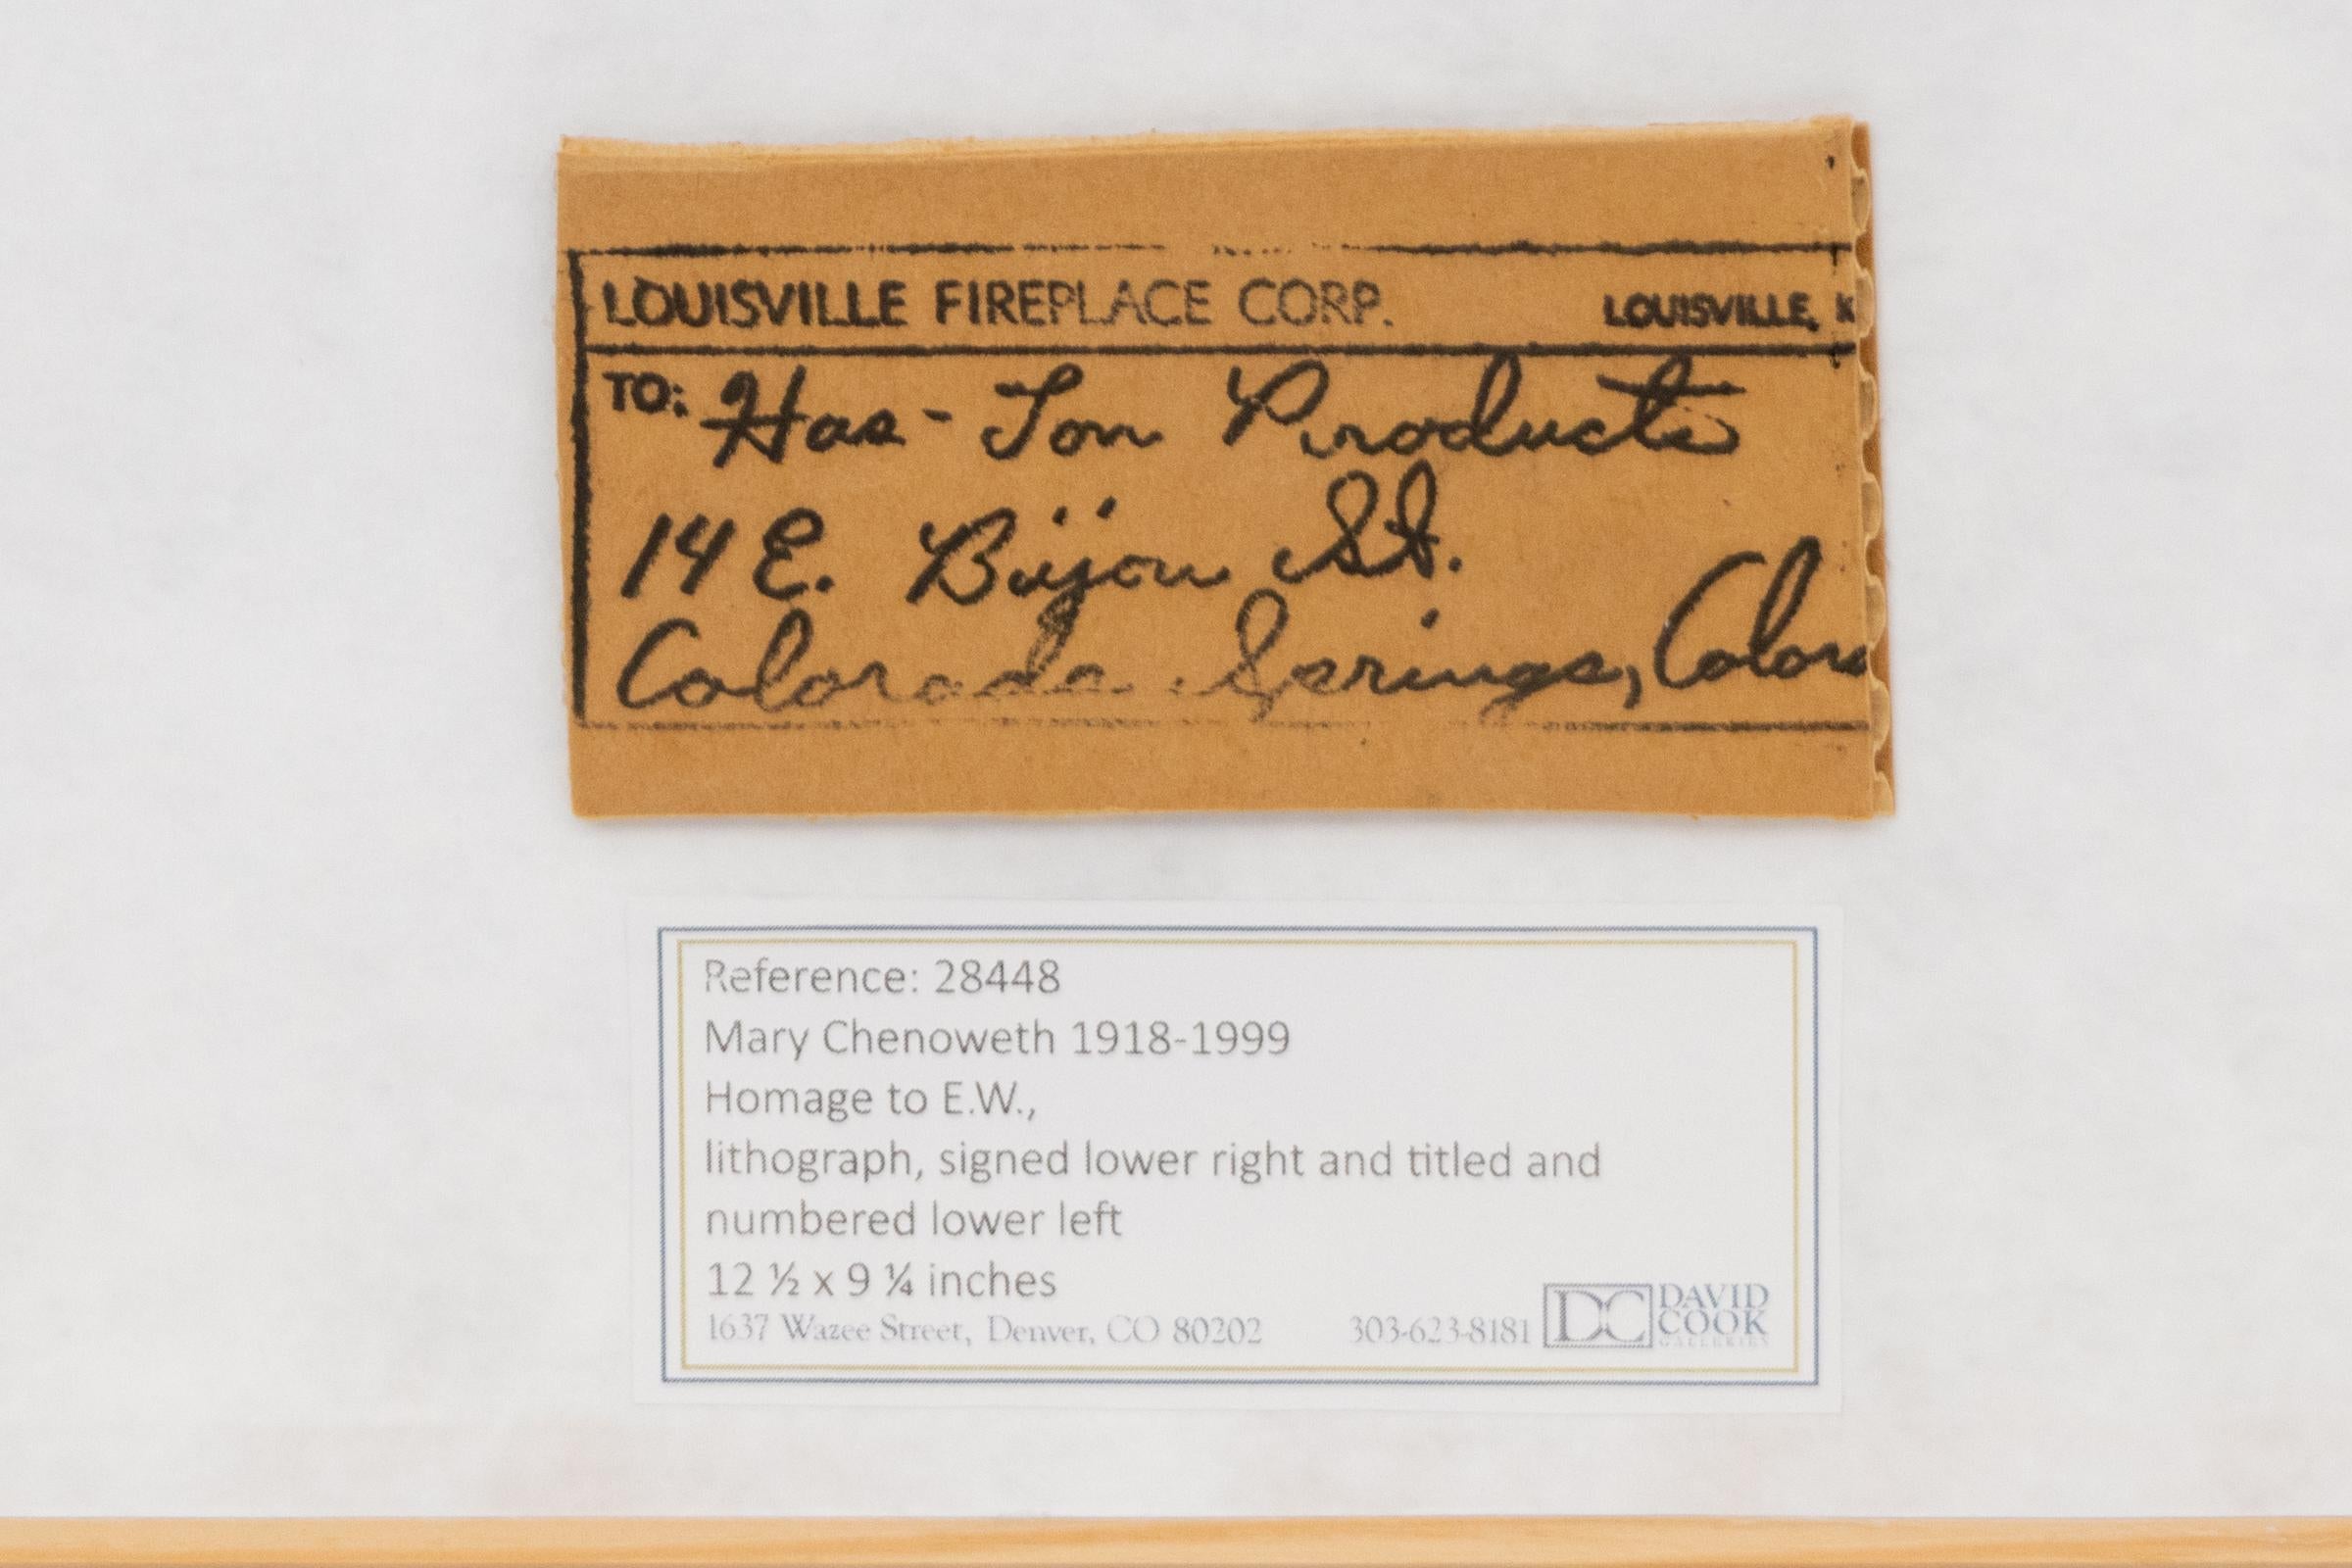 LOUISVILLE FIREPLACE CORP. LOUISVILLE, K
TO: Has-Ton Products
14 E. Bijou St.
Colorado Springs, Color
Reference: 28448
Mary Chenoweth 1918-1999
Homage to E.W.,
lithograph, signed lower right and titled and
numbered lower left
12 ½ x 9 ¼ inches
1637 Wazee Street, Denver, CO 80202 303-623-8181 DC DAVID
COOK
GALLERIES